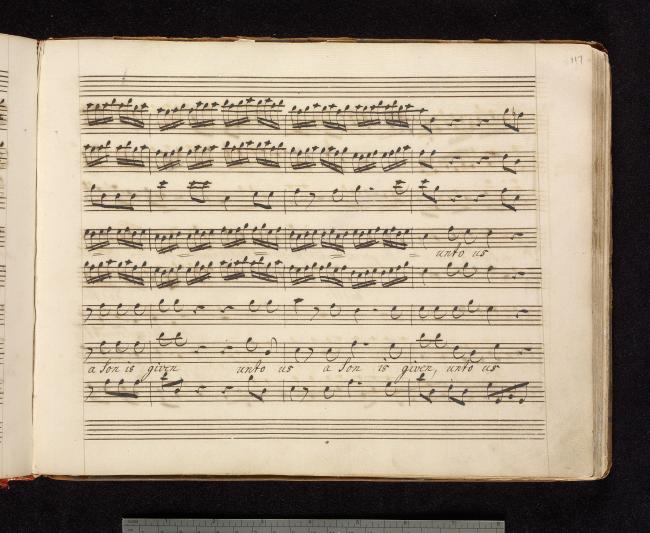 117
unto us
a Son is given unto us a Son is given, unto us